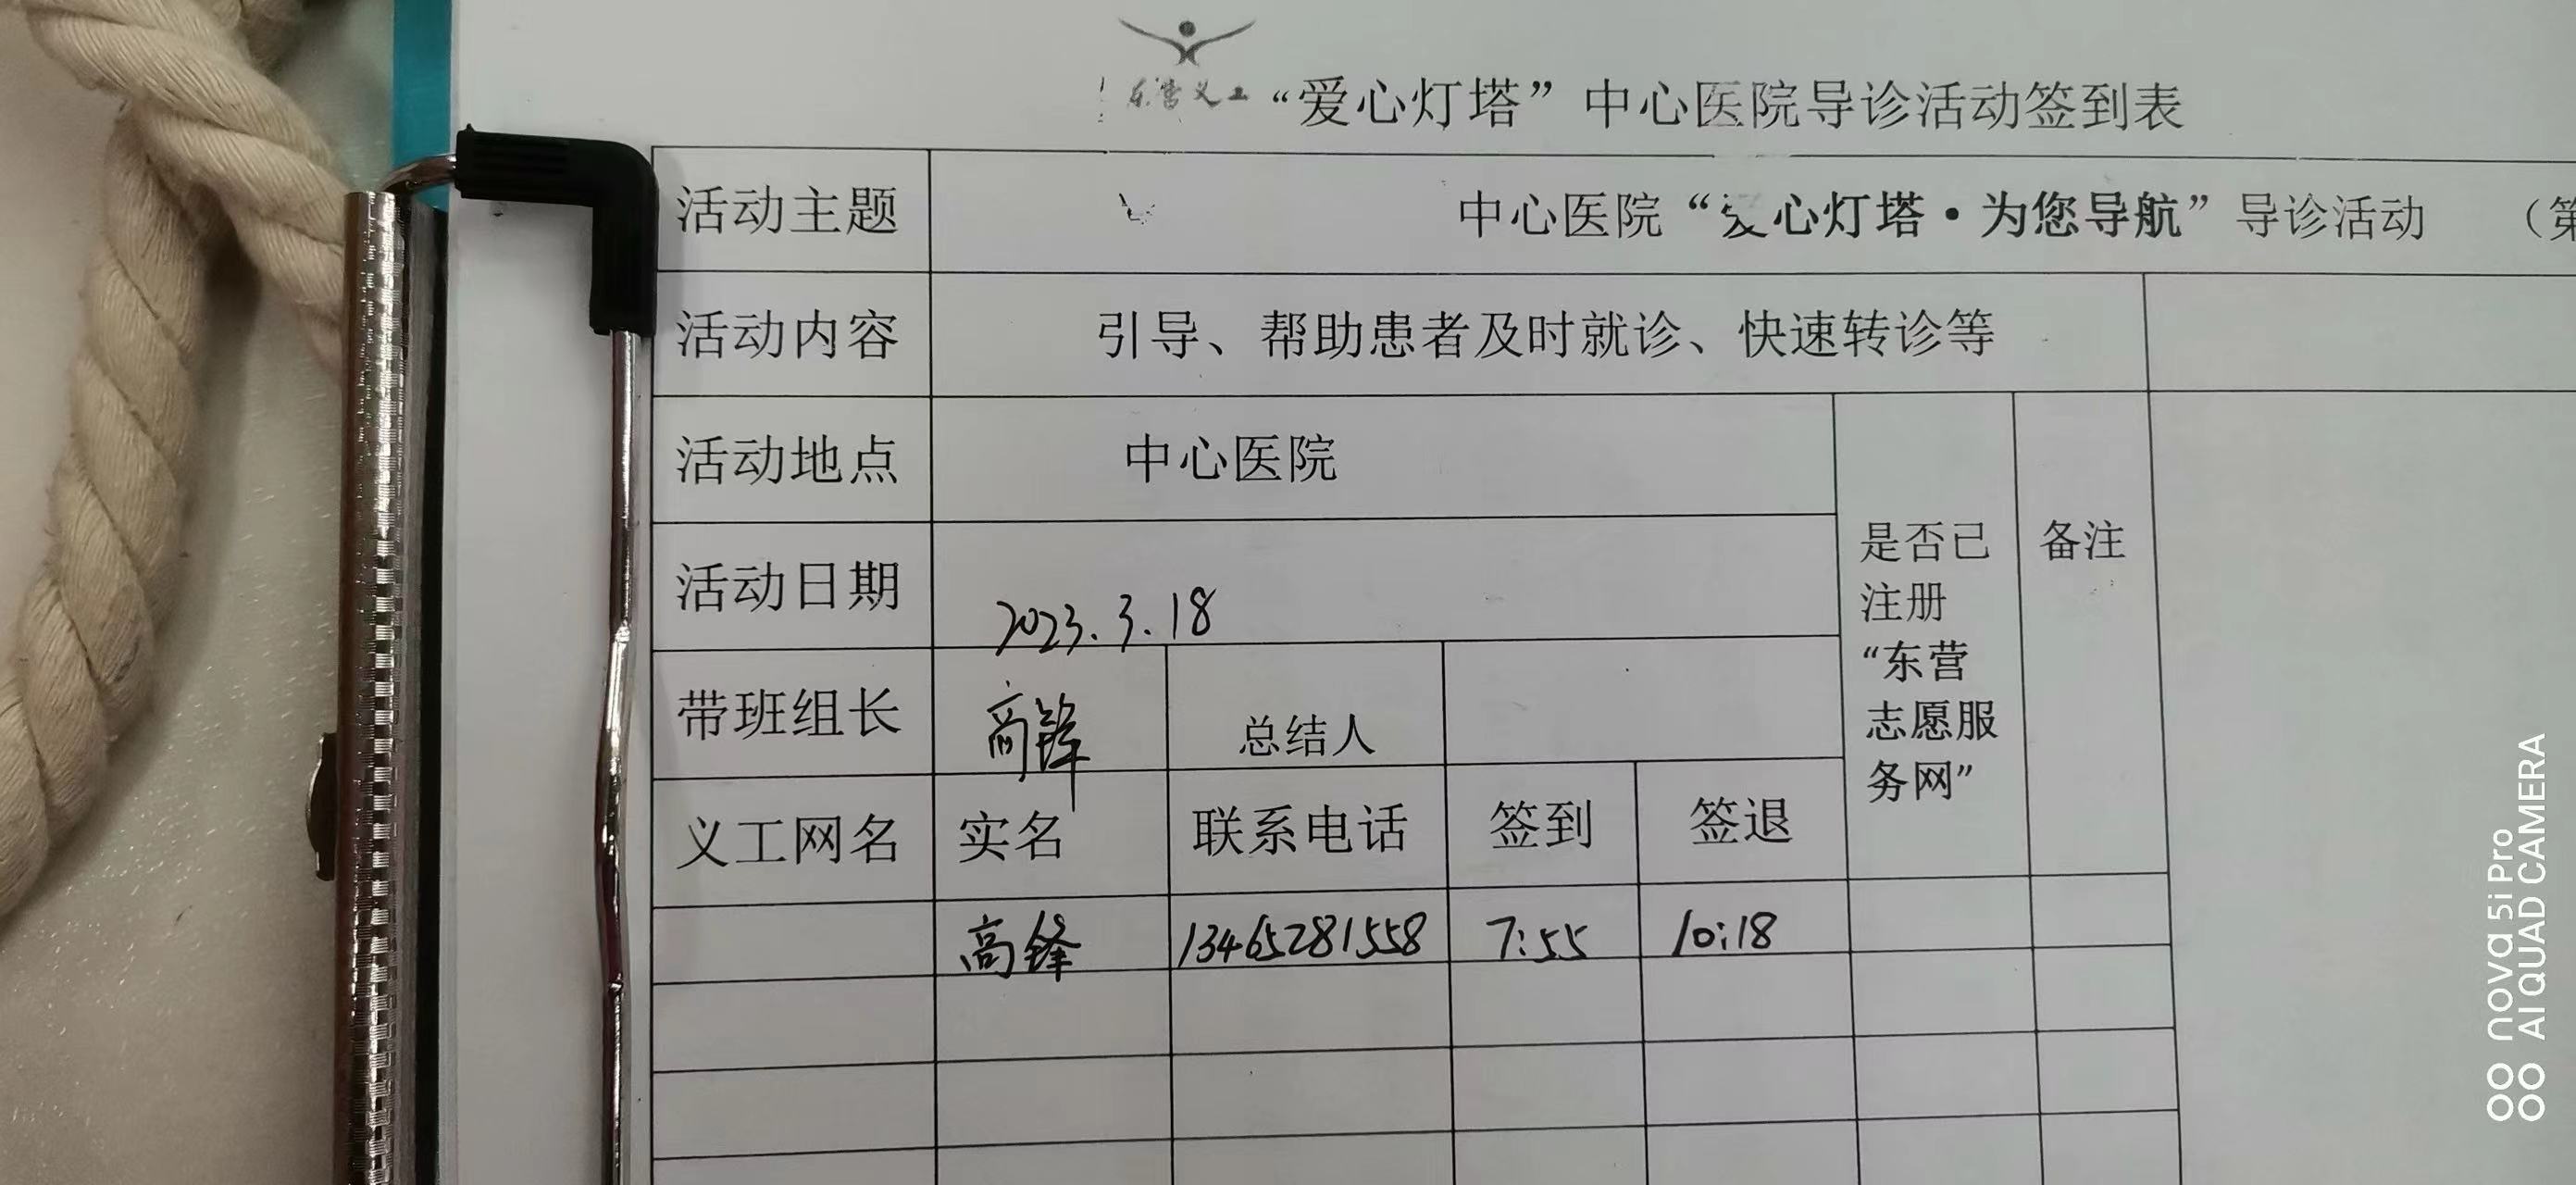 东营义工 “爱心灯塔”中心医院导诊活动签到表
活动主题 中心医院“爱心灯塔·为您导航”导诊活动 （第
活动内容 引导、帮助患者及时就诊、快速转诊等
活动地点 中心医院
活动日期 2023.3.18
带班组长 高锋 总结人
义工网名 实名 联系电话 签到 签退
是否已
注册
“东营
志愿服
务网”
备注
高锋 13465281558 7:55 10:18
nova 5i Pro
AI QUAD CAMERA